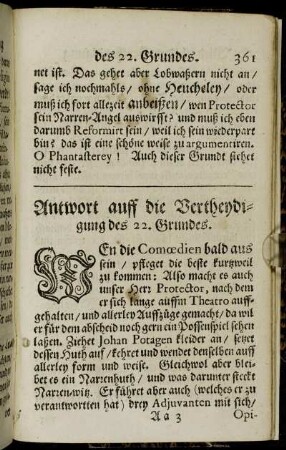 des 22. Grundes. 361
net ist. Das gehet aber Lobwaßern nicht an/
sage ich nochmahls/ ohne Heucheley/ oder
muß ich fort allezeit anbeißen/ wen Protector
sein Narren-Angel auswirfft? und muß ich eben
darumb Reformirt sein/ weil ich sein wiederpart
bin? das ist eine schöne weise zu argumentiren.
O Phantasterey! Auch dieser Grundt stehet
nicht feste.
Antwort auff die Vertheydi-
gung des 22. Grundes.
WEn die Comœdien bald aus
sein/ pfleget die beste kurtzweil
zu kommen: Also macht es auch
unser Herr Protector, nach dem
er sich lange auffm Theatro auff-
gehalten/ und allerley Auffzüge gemacht/ da wil
er für dem abscheid noch gern ein Possenspiel sehen
laßen. Ziehet Johan Potagen kleider an/ setzet
dessen Huth auff/ kehret und wendet denselben auff
allerley form und weise. Gleichwol aber blei-
bet es ein Narrenhuth/ und was darunter steckt
Narren-witz. Er führet aber auch (welches er zu
verantworten hat) drey Adjuvanten mit sich/
Aa 3 Opi-